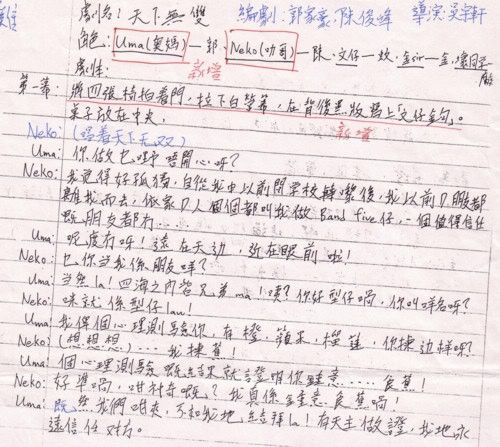 劇名：天下無雙 編劇：郭家豪，陳俊峰 導演：吳宇軒
角色：Uma(奧媽)—郭 Neko(叻哥)—陳 文仔—坎
劇情： 新增
第一幕：將四張椅拍着門，拉下白螢幕，在背後黑板寫上「文仔金句」。
桌子放在中央 新增
Neko：(唱着天下无双)
Uma：你做乜嘢唔開心呀？
Neko：我覺得好孤獨，自從我中以前間學校轉嚟後，我以前D朋友都
離我而去，依家D人個個都叫我做 Band five仔，一個值得信任
既朋友都冇....
Uma：呢度有呀！遠在天边，近在眼前 啦！
Neko：乜你當我係朋友咩？
Uma：當然la！四海之內皆兄弟ma！咦？你好型仔喎，你叫咩名呀？
Neko：咪就係型仔lau！
Uma：我俾個心理測驗你，有橙、蘋果、榴槤，你揀边样呀？
Neko：(想想想).... 我揀蕉！
Uma：個心理測驗既結果就證明你鍾意.....食蕉！
Neko：好準喎，咁神奇既？我真係鍾意食蕉喎！
Uma：既然我們咁夾，不如我地結拜la！有天主做證，我地永
遠信任对方。